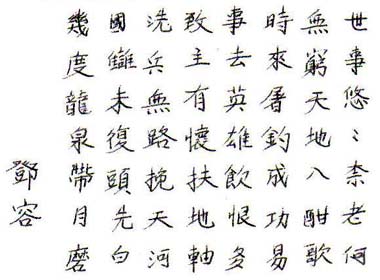 世事悠〻奈老何
無窮天地入酣歌
時來屠釣成功易
事去英雄飲恨多
致主有懷扶地軸
洗兵無路挽天河
國讎未復頭先白
幾度龍泉帶月磨
鄧容